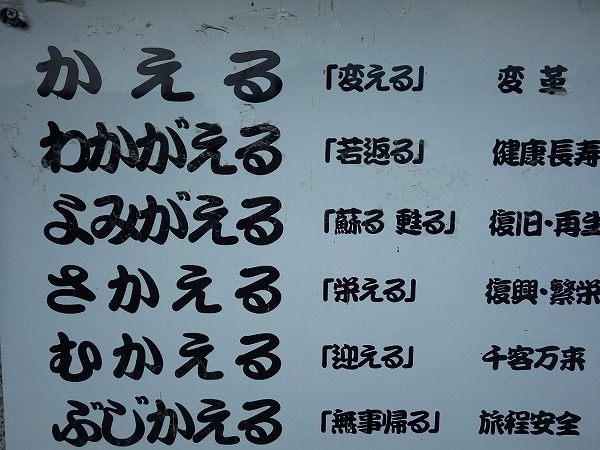 かえる 「変える」 変革
わかがえる 「若返る」 健康長寿
よみがえる 「蘇る 甦る」 復旧・再生
さかえる 「栄える」 復興・繁栄
むかえる 「迎える」 千客万来
ぶじかえる 「無事帰る」 旅程安全